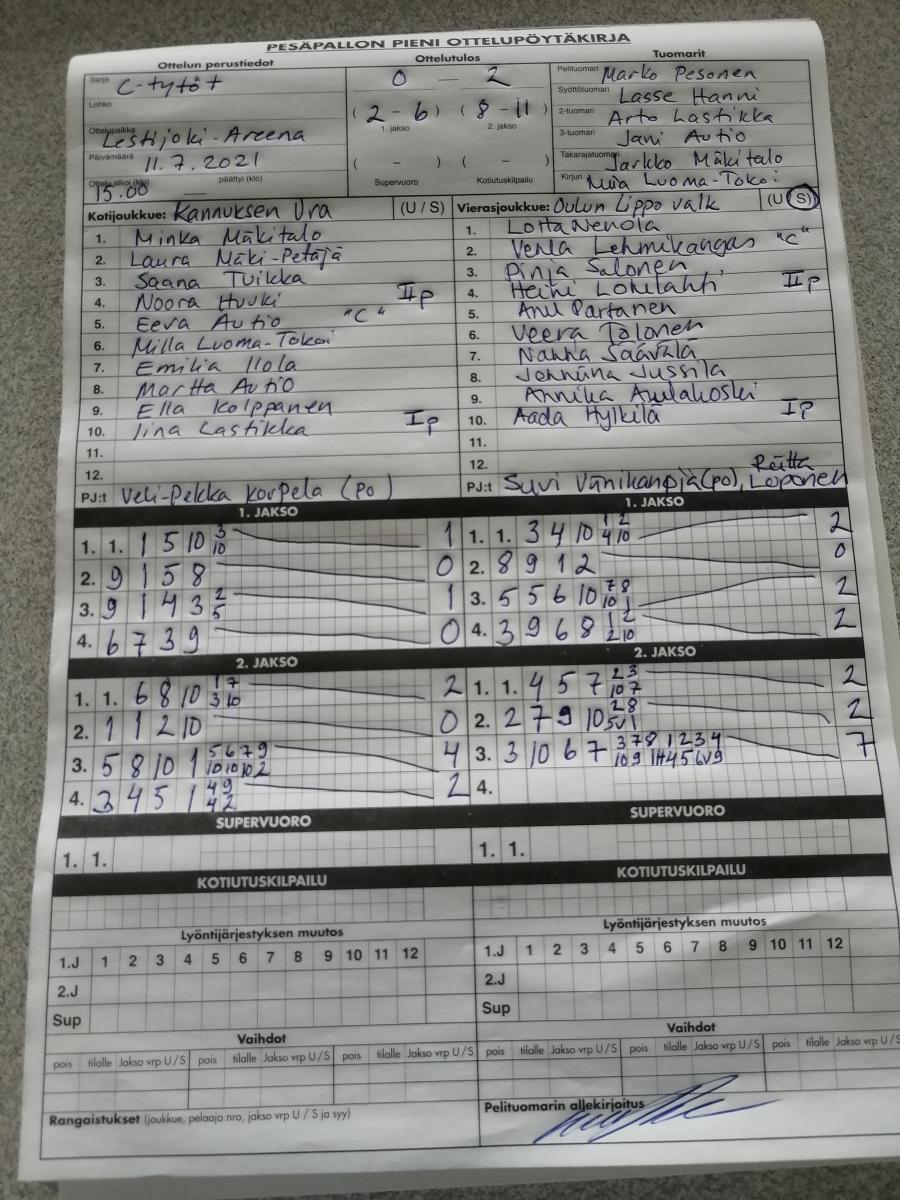 PESÄPALLON PIENI OTTELUPÖYTÄKIRJA
Ottelun perustiedot
Ottelutulos
Tuomarit
Sarja C-tytöt
0 — 2
Pelituomari Marko Pesonen
Lohko
(2 - 6) (8 - 11)
Syöttötuomari Lasse Hanni
1. jakso 2. jakso
2-tuomari Arto Lastikka
Ottelupaikka Lestijoki-Areena
3-tuomari Jani Autio
Päivämäärä 11.7.2021
( - ) ( - )
Takarajatuomari Jarkko Mäkitalo
Ottelu alkoi (klo) 15.00 — päättyi (klo)
Supervuoro Kotiutuskilpailu
Kirjuri Miia Luoma-Tokoi
Kotijoukkue: Kannuksen Ura (U / S)
1. Minka Mäkitalo
2. Laura Mäki-Petäjä
3. Saana Tuikka
4. Noora Huuki IIp
5. Eeva Autio "C"
6. Milla Luoma-Tokoi
7. Emilia Ilola
8. Martta Autio
9. Ella Kolppanen
10. Iina Lastikka Ip
11.
12.
PJ:t Veli-Pekka Korpela (po)
Vierasjoukkue: Oulun Lippo valk (U S)
1. Lotta Nenola
2. Venla Lehmikangas "C"
3. Pinja Salonen
4. Heini IIp
5. Anu Partanen
6. Veera Tolonen
7. Säävälä
8. Jussila
9. Annika
10. Aada Hylkilä Ip
11.
12.
PJ:t Suvi (po), Reetta Leponen
1. JAKSO
1. 1. 1 5 10 3 1
10
2. 9 1 5 8 0
3. 9 1 4 3 2 1
5
4. 6 7 3 9 0
1. JAKSO
1. 1. 3 4 10 1 2 2
4 10
2. 8 9 1 2 0
3. 5 5 6 10 7 8 2
10 1
4. 3 9 6 8 1 2 2
2 10
2. JAKSO
1. 1. 6 8 10 1 7 2
3 10
2. 1 1 2 10 0
3. 5 8 10 1 5 6 7 9 4
10 10 10 2
4. 3 4 5 1 4 9 2
4 2
2. JAKSO
1. 1. 4 5 7 2 3 2
10 7
2. 2 7 9 10 2 8 2
5V 1
3. 3 10 6 7 3 7 8 1 2 3 4 7
10 9 1H 4 5 6V 9
4.
SUPERVUORO
1. 1.
SUPERVUORO
1. 1.
KOTIUTUSKILPAILU
KOTIUTUSKILPAILU
Lyöntijärjestyksen muutos
1.J 1 2 3 4 5 6 7 8 9 10 11 12
2.J
Sup
Lyöntijärjestyksen muutos
1.J 1 2 3 4 5 6 7 8 9 10 11 12
2.J
Sup
Vaihdot
pois tilalle Jakso vrp U / S pois tilalle Jakso vrp U / S pois tilalle Jakso vrp U / S
Vaihdot
pois tilalle Jakso vrp U / S pois tilalle Jakso vrp U / S pois tilalle Jakso vrp U / S
Rangaistukset (joukkue, pelaaja nro, jakso vrp U / S ja syy)
Pelituomarin allekirjoitus